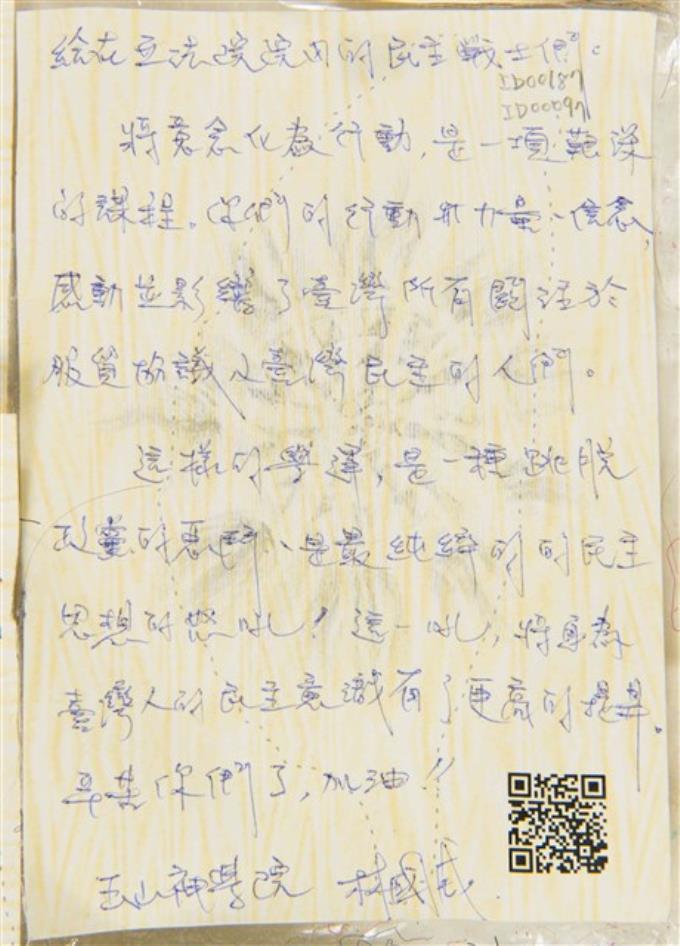 給在立法院院內的民主戰士們。
ID00187
ID00097
將意念化為行動,是一項艱深
的課程。你們的行動力量、信念,
感動並影響了臺灣所有關注於
服貿協議及臺灣民主的人們。
這樣的學運,是一種跳脫
政黨的惡鬥、是最純粹的的民主
思想的怒吼!這一吼,將身為
臺灣人的民主意識有了更高的提昇。
辛苦你們了,加油!!
玉山神學院 林國